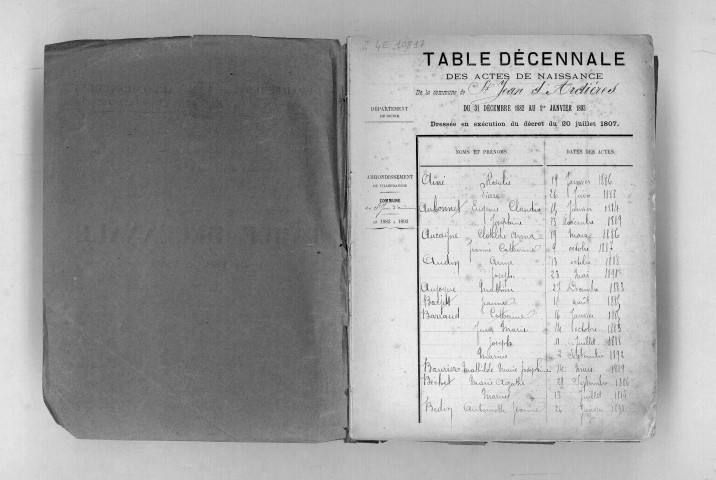 4E 10817
TABLE DÉCENNALE
DES ACTES DE NAISSANCE
De la commune de St Jean d'Ardières
DU 31 DÉCEMBRE 1882 AU 1er JANVIER 1893
Dressée en exécution du décret du 20 juillet 1807.
DÉPARTEMENT
DU RHONE
ARRONDISSEMENT
DE VILLEFRANCHE
COMMUNE
de St Jean d'Ardières
de 1882 à 1893
NOMS ET PRÉNOMS DATES DES ACTES
Rosalie 19 Janvier 1886
26 1888
Aubonnet Eugène Claudius 15 Janvier 1884
Joséphine 13 décembre 1889
Aucagne Clotilde Anna 19 Mars 1886
Jeanne Catherine 9 octobre 1887
Audry 13 octobre 1888
Joseph 23 Mai 1891
Mathieu 27 Décembre 1883
Jeanne août 1885
Barraud Catherine 16 Janvier 1885
Marie 14 octobre 1883
Joseph 11 Juillet 1888
Marius 2 Septembre 1892
Mathilde Marie Joséphine 14 Mars 1889
Marie Agathe 29 Septembre 1886
Marius 13 Juillet
Antoinette Jeanne 24 Janvier